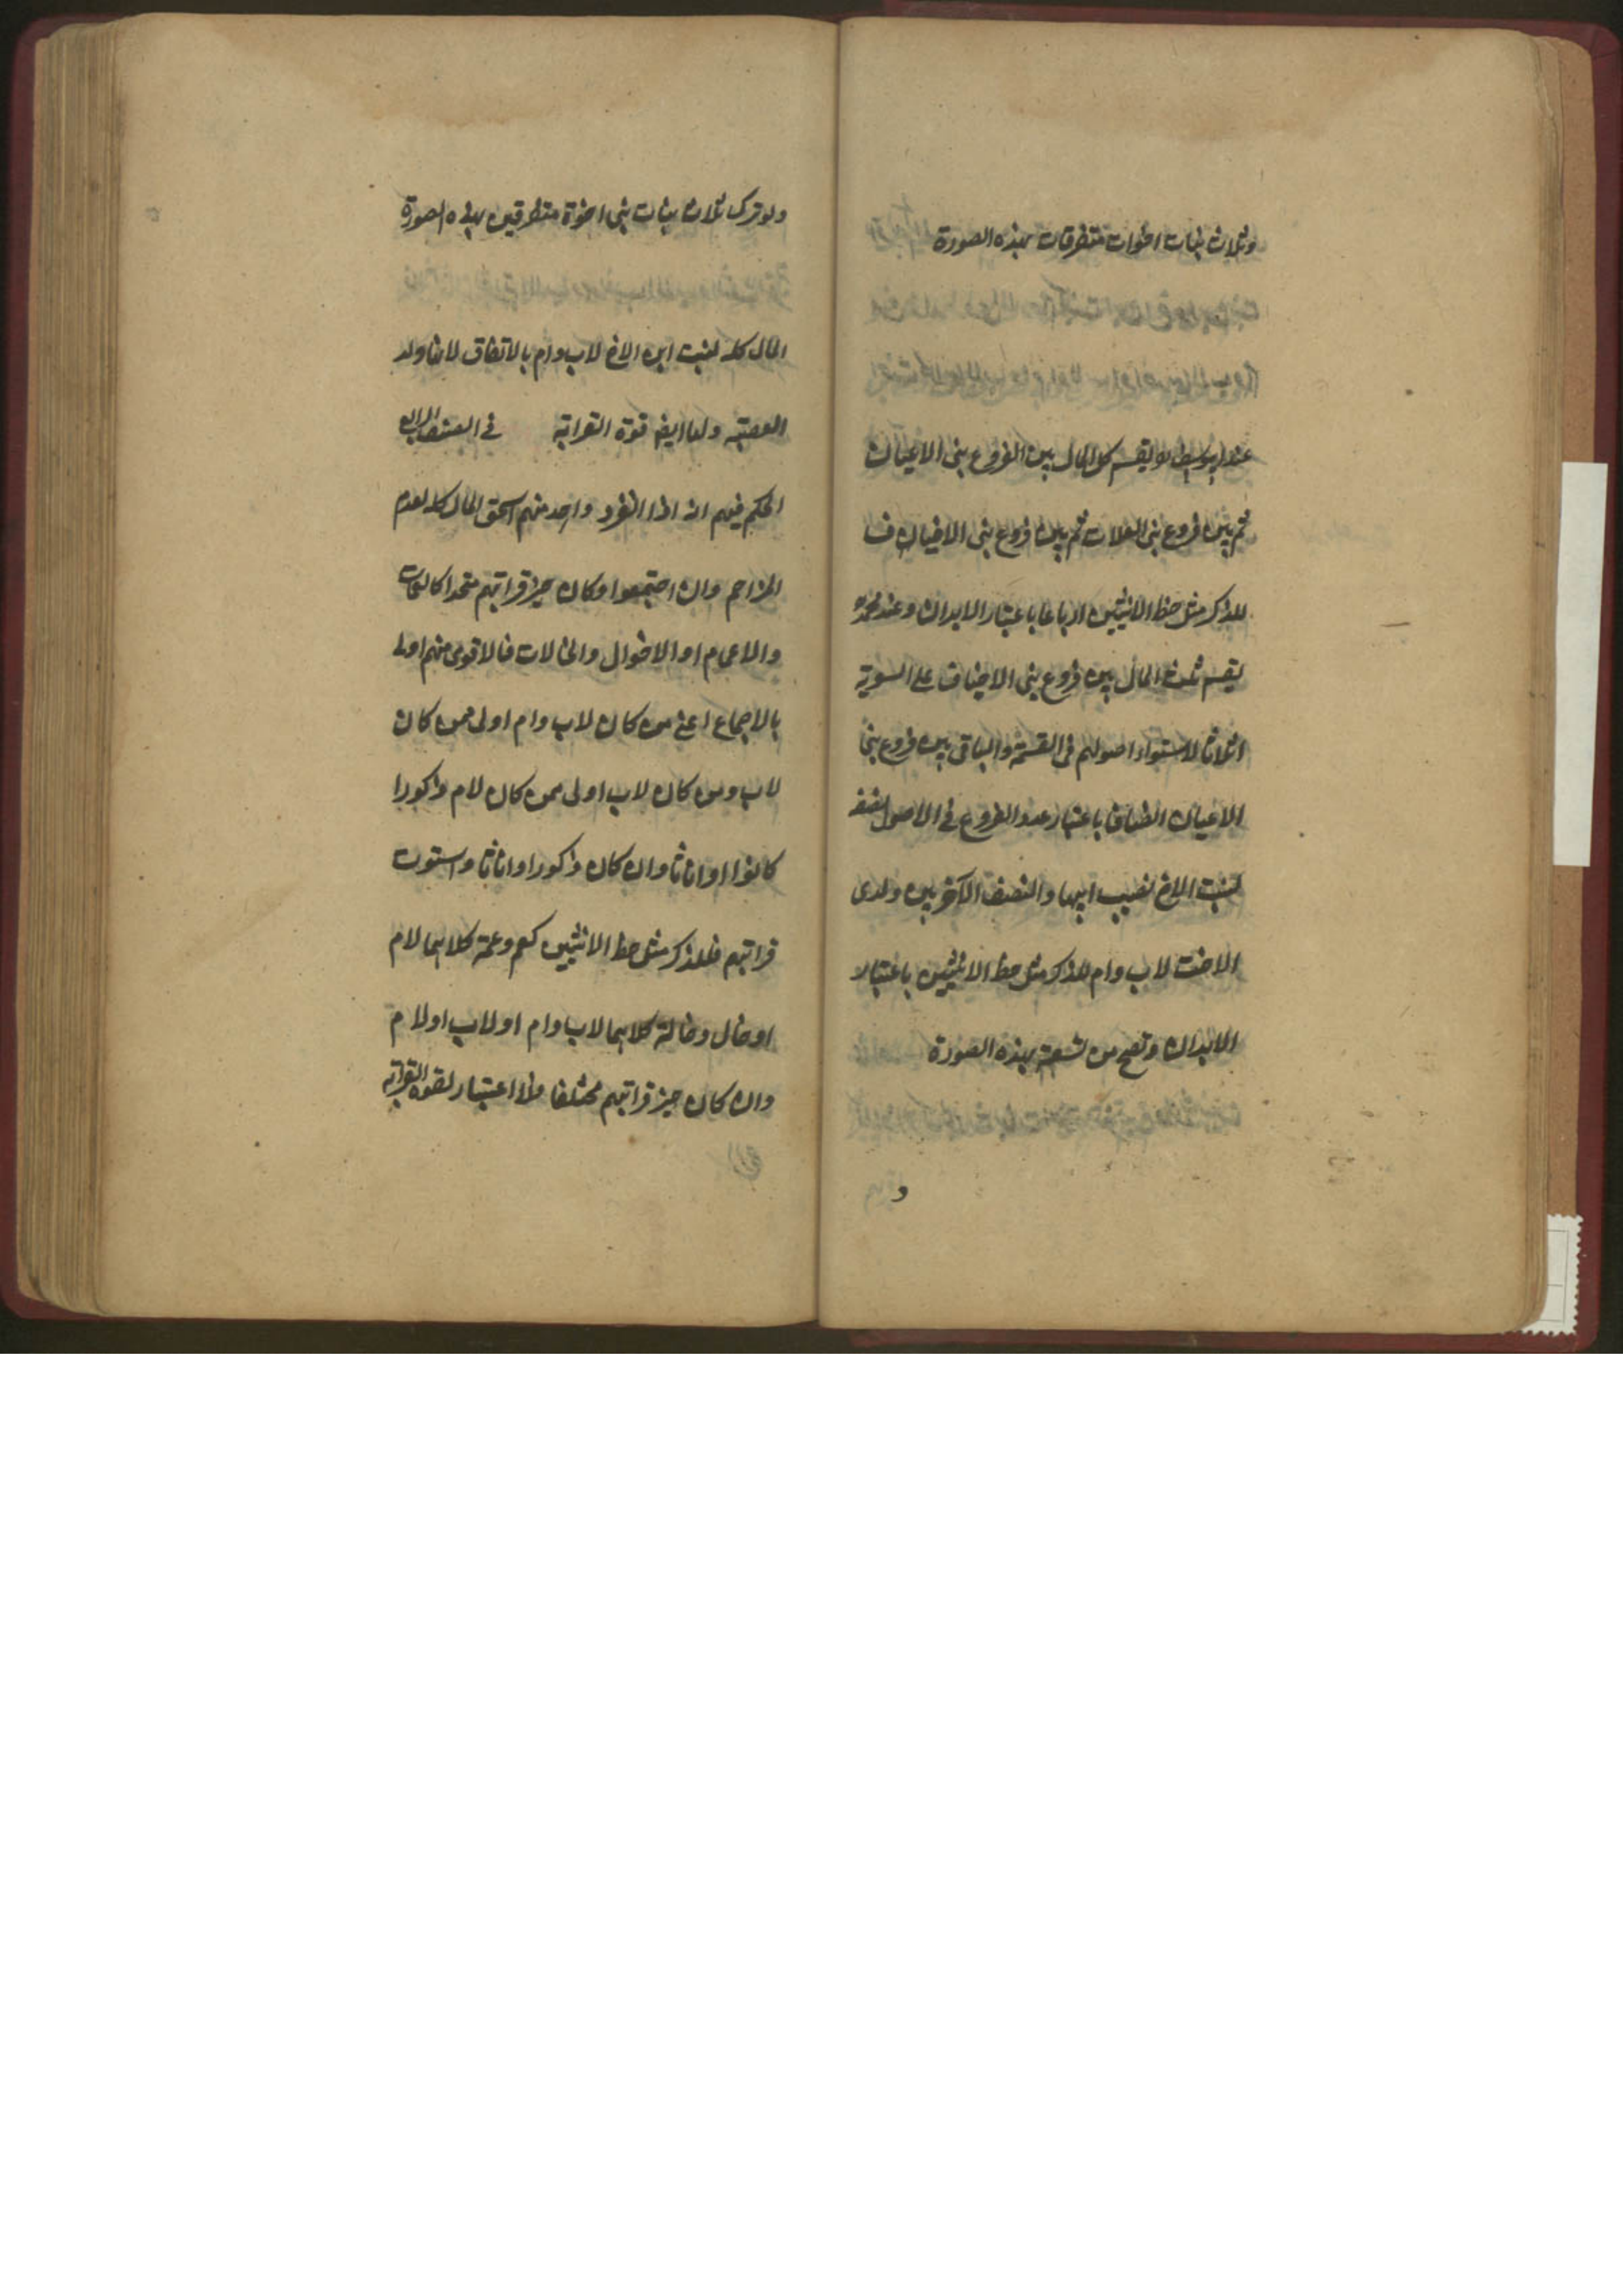 وثلاث بنات اخوات متفرقات بهذه الصورة
عند ابى يوسف رح يقسم كل المال بين الفروع بنى الاعيان
ثم بين فروع بنى العلات ثم بين فروع بنى الاخياف
للذكر مثل حظ الانثيين ارباعا باعتبار الابدان وعند محمد رح
يقسم ثلث المال بين فروع بنى الاخياف على السوية
اثلاثا لاستواء اصولهم فى القسمة والباقى بين فروع بنى
الاعيان انصافا باعتبار عدد الفروع فى الاصول نصفه
لبنت الاخ نصيب ابيها والنصف الآخر بين ولدى
الاخت لاب وام للذكر مثل حظ الانثيين باعتبار
الابدان وتصح من تسعة بهذه الصورة
و
ولو ترك ثلاث بنات بنى اخوة متفرقين بهذه الصورة
المال كله لبنت ابن الاخ لاب وام بالاتفاق لانها ولد
العصبة ولها ايضا قوة القرابة فى الصنف الرابع
الحكم فيهم انه اذا انفرد واحد منهم استحق المال كله لعدم
المزاحم وان اجتمعوا وكان حيز قرابتهم متحدا كالعمات
والاعمام او الاخوال والخالات فالاقوى منهم اولى
بالاجماع اعنى من كان لاب وام اولى ممن كان
لاب ومن كان لاب اولى ممن كان لام ذكورا
كانوا او اناثا وان كان ذكورا او اناثا واستوت
قرابتهم فللذكر مثل حظ الانثيين كعم وعمة كلاهما لام
او خال وخالة كلاهما لاب وام او لاب او لام
وان كان حيز قرابتهم مختلفا فلا اعتبار لقوة القرابة